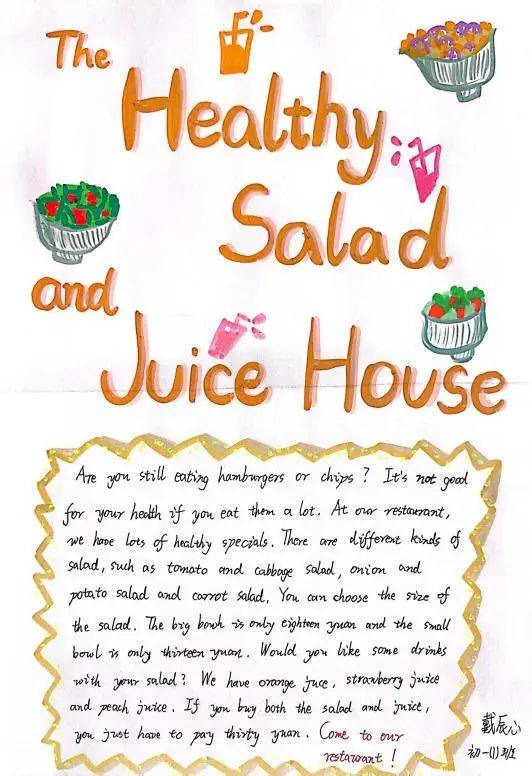 The
Healthy
Salad
and
Juice House
Are you still eating hamburgers or chips? It's not good
for your health if you eat them a lot. At our restaurant,
we have lots of healthy specials. There are different kinds of
salad, such as tomato and cabbage salad, onion and
potato salad and carrot salad. You can choose the size of
the salad. The big bowh is only eighteen yuan and the small
bowl is only thirteen yuan. Would you like some drinks
with your salad? We have orange juce, strawberry juice
and peach juice. If you buy both the salad and juice,
you just have to pay thirty yuan. Come to our
restaurant!
戴辰心
初一(1)班